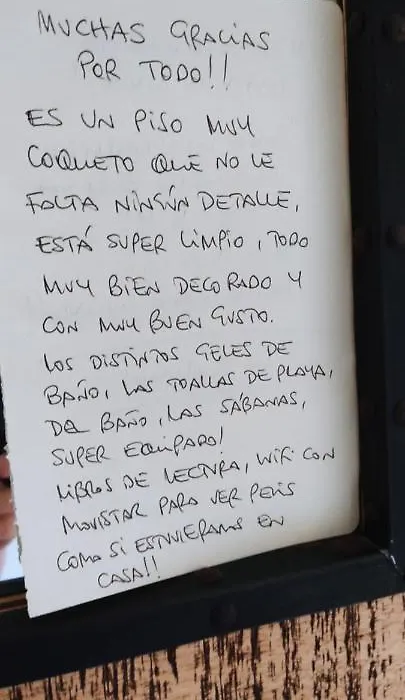 MUCHAS GRACIAS
POR TODO!!
ES UN PISO MUY
COQUETO QUE NO LE
FALTA NINGÚN DETALLE,
ESTÁ SUPER LIMPIO, TODO
MUY BIEN DECORADO Y
CON MUY BUEN GUSTO.
LOS DISTINTOS GELES DE
BAÑO, LAS TOALLAS DE PLAYA,
DE BAÑO, LAS SÁBANAS,
SUPER EQUIPADO!
LIBROS DE LECTURA, WIFI CON
MOVISTAR PARA VER PELIS
COMO SI ESTUVIERAMOS EN
CASA!!